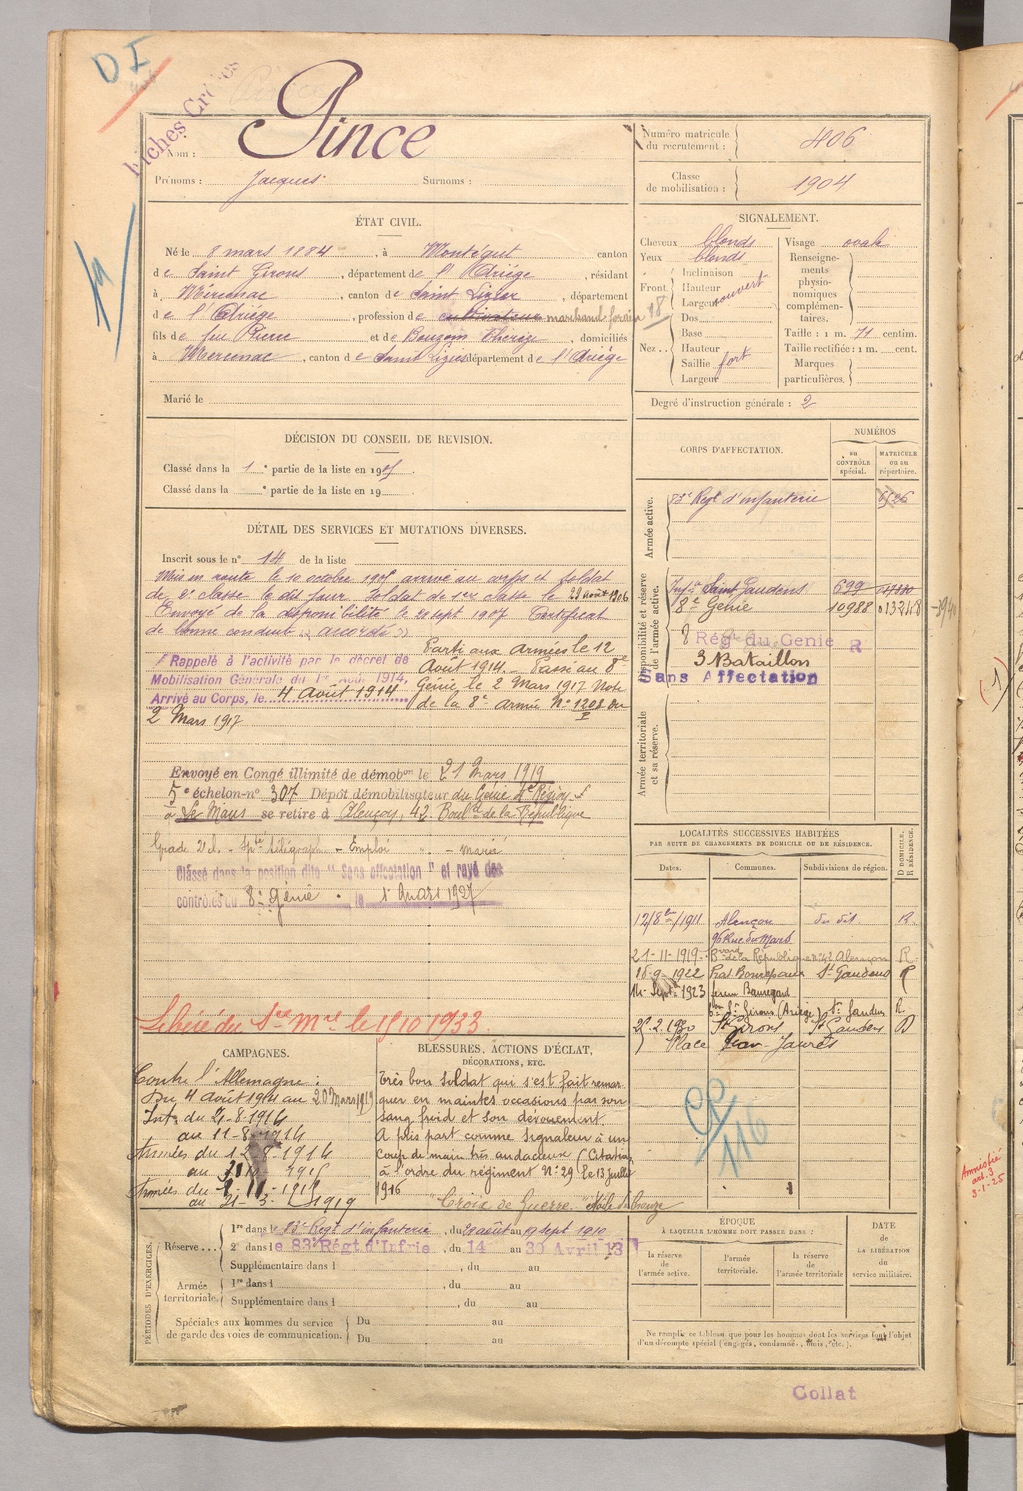 D I
Fiches Créées
19
Nom : Pince
Prénoms : Jacques Surnoms :
Numéro matricule du recrutement : 406
Classe de mobilisation : 1904
ÉTAT CIVIL.
Né le 8 mars 1884, à Montégut canton
de Saint Girons, département de l'Ariège, résidant
à Mercenac, canton de Saint Lizier, département
de l'Ariège, profession de cultivateur marchand forain 18
fils de feu Pierre et de Bouzein Thérèze, domiciliés
à Mercenac, canton de Saint Lizier département de l'Ariège
Marié le
SIGNALEMENT.
Cheveux blonds
Yeux blonds
Front. Inclinaison
Hauteur
Largeur
couvert
Nez.. Dos
Base
Hauteur
Saillie fort
Largeur
Visage ovale
Renseignements physionomiques complémentaires.
Taille : 1 m. 71 centim.
Taille rectifiée : 1 m. cent.
Marques particulières.
Degré d'instruction générale : 2
DÉCISION DU CONSEIL DE REVISION.
Classé dans la 1e partie de la liste en 1905
Classé dans la e partie de la liste en 19
DÉTAIL DES SERVICES ET MUTATIONS DIVERSES.
Inscrit sous le n° 14 de la liste
Mis en route le 10 octobre 1905 arrivé au corps et soldat
de 2e classe le dit jour. Soldat de 1ere classe le 28 août 1906
Envoyé de la disponibilité le 21 sept 1907 Certificat
de bonne conduite « accordé »
Rappelé à l'activité par le décret de
Mobilisation Générale du 1er Août 1914,
Arrivé au Corps, le 4 Août 1914
Parti aux Armées le 12
Août 1914. Passé au 8e
Génie, le 2 Mars 1917 Note
de la 8e Armée N° 1208 du
2 Mars 1917
Envoyé en Congé illimité de démobon le 21 Mars 1919
5e échelon-n° 307 Dépôt démobilisateur du Génie 4e Région
à Le Mans se retire à Alençon, 42. Boulrd de la République
Grade 2 cl. - Spté télégraph - Emploi " - marié
Classé dans la position dite " Sans affectation " et rayé des
contrôles du 8e Génie le 1 Mars 1927
Libéré du Sce Mre le 15 10 1933
CORPS D'AFFECTATION.
NUMÉROS
au CONTRÔLE spécial.
MATRICULE ou au répertoire.
Armée active.
83e Regt d'infanterie
Disponibilité et réserve de l'armée active.
Infie Saint Gaudens 699
8e Génie 10988 013248
8 Rég. du Genie R
3 Bataillon
Sans Affectation
Armée territoriale et sa réserve.
LOCALITÉS SUCCESSIVES HABITÉES
PAR SUITE DE CHANGEMENTS DE DOMICILE OU DE RÉSIDENCE.
Dates. Communes. Subdivisions de région. D DOMICILE, R RÉSIDENCE.
12/8bre/1911 Alençon du dit R
96 Rue du Mans
21-11-1919 Bvard de la République n° 42 Alençon R
18-9-1922 St Gaudens R
14 Sept. 1923 Bauregard
St Girons (Ariège) St Gaudens R
St Girons St Gaudens D
Place Jean Jaurès
CR/116
Amnistié
art. 3
3-1-25
CAMPAGNES.
Contre l'Allemagne :
Du 4 août 1914 au 20 Mars 1919
Intr du 4-8-1914
au 11-8-1914
Armées du 12-8-1914
au
Armées du
au 21-3-1919
BLESSURES, ACTIONS D'ÉCLAT,
DÉCORATIONS, ETC.
Très bon Soldat qui s'est fait remar
quer en maintes occasions par son
sang froid et son dévouement.
A pris part comme signaleur à un
coup de main très audacieux (Citation
à l'ordre du régiment N° 29 le 13 juillet
1916 "Croix de Guerre." Etoile de bronze
PÉRIODES D'EXERCICES.
Réserve...
1re dans le 83e Regt d'infanterie, du 29 août au 19 sept 1910
2e dans le 83e Régt d'Infrie, du 14 au 30 Avril 13
Supplémentaire dans l , du au
Armée territoriale.
1re dans l , du au
Supplémentaire dans l , du au
Spéciales aux hommes du service
de garde des voies de communication.
Du au
Du au
ÉPOQUE
À LAQUELLE L'HOMME DOIT PASSER DANS :
la réserve de l'armée active.
l'armée territoriale.
la réserve de l'armée territoriale
DATE de LA LIBÉRATION du service militaire.
Ne remplir ce tableau que pour les hommes dont les services font l'objet
d'un décompte spécial (engagés, condamnés, omis, etc.).
Collat